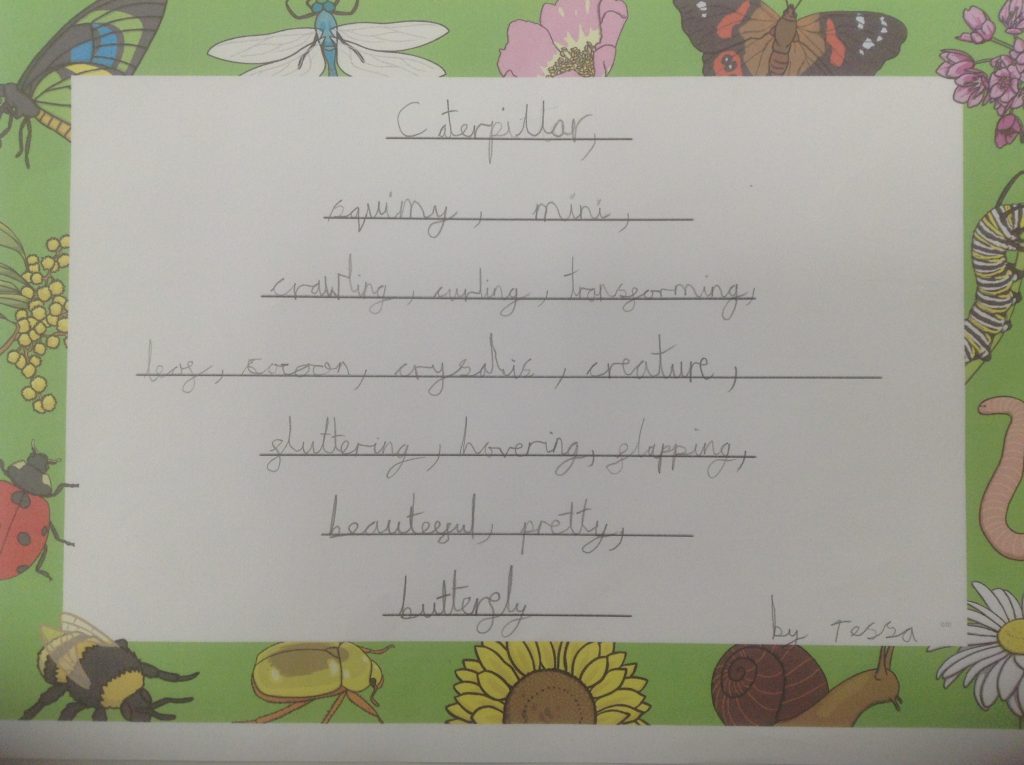 Caterpillar,
squimy, mini,
crawling, curling, transforming,
cocoon, crysalis, creature,
fluttering, hovering, flapping,
beauteful, pretty,
butterfly
by Tessa